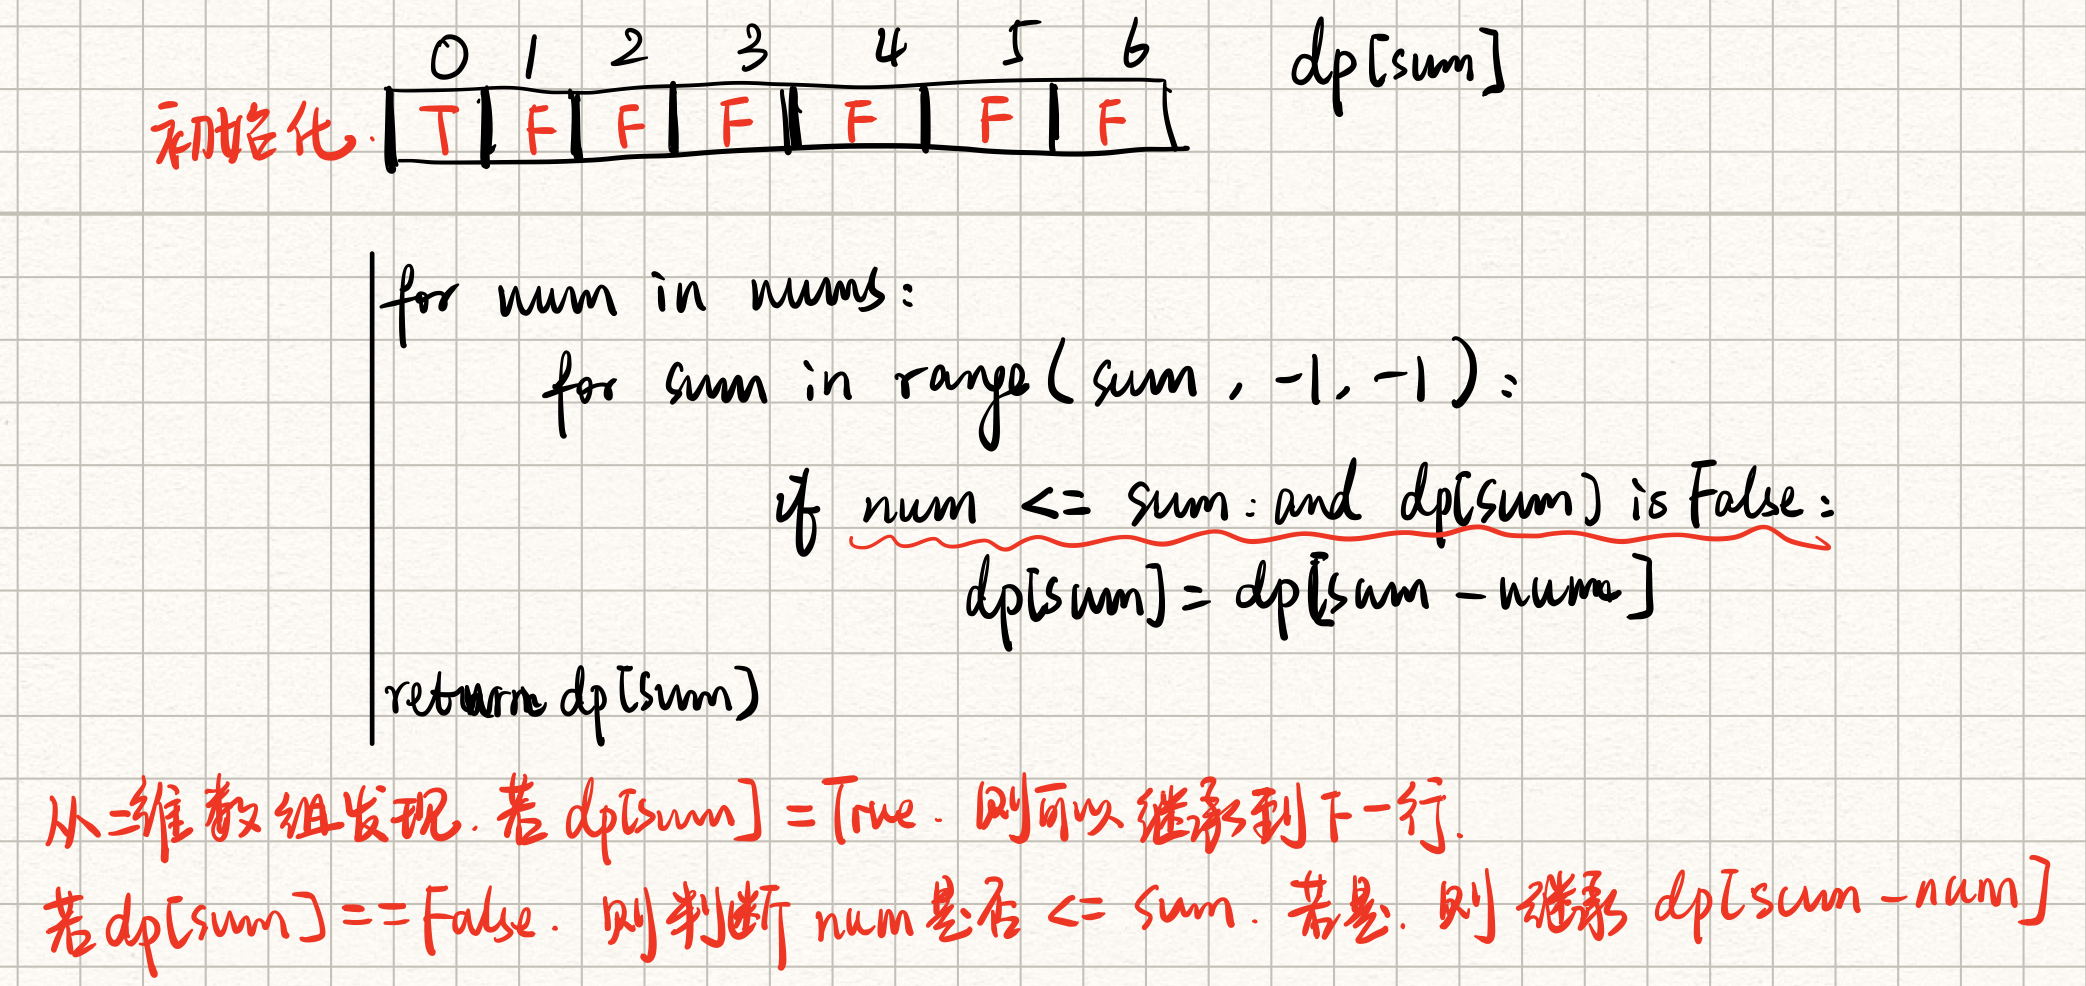 0 1 2 3 4 5 6 dp[sum]
初始化. T F F F F F F
for num in nums:
for sum in range(sum, -1, -1):
if num <= sum: and dp[sum] is False:
dp[sum] = dp[sum - num]
return dp[sum]
从二维数组发现. 若 dp[sum] = True. 则可以继承到下一行.
若 dp[sum] == False. 则判断 num 是否 <= sum. 若是. 则 继承 dp[sum - num]